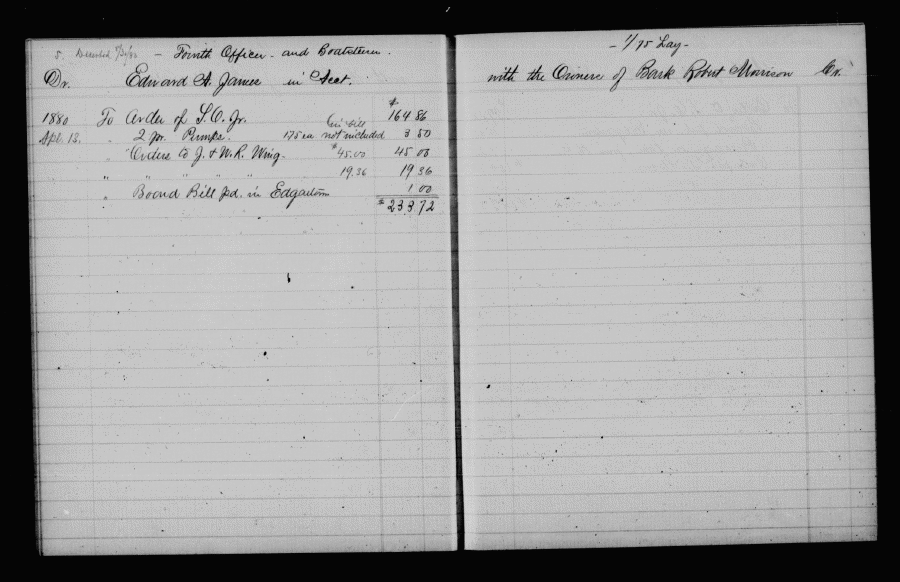 5. Deserted 7/31/80 - Fourth Officer and Boatsteerer.
Dr. Edward A. James in Acct.
$
1880 To Order of S. O. Jr. 164 86
Apl. 13. " 2 pr. Pumps. 175 ea (in bill not included 3 50
" Orders to J. & W. R. Wing. $45.00 45 00
" " " " " 19.36 19 36
" Board Bill pd. in Edgartown 1 00
$233 72
- 1/75 Lay -
with the Owners of Bark Robert Morrison Cr.